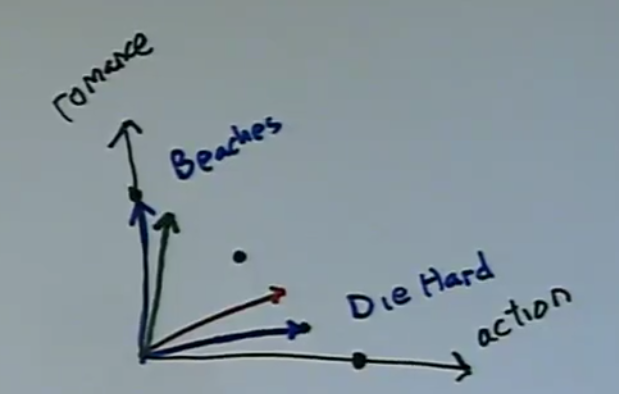 romance
Beaches
Die Hard
action